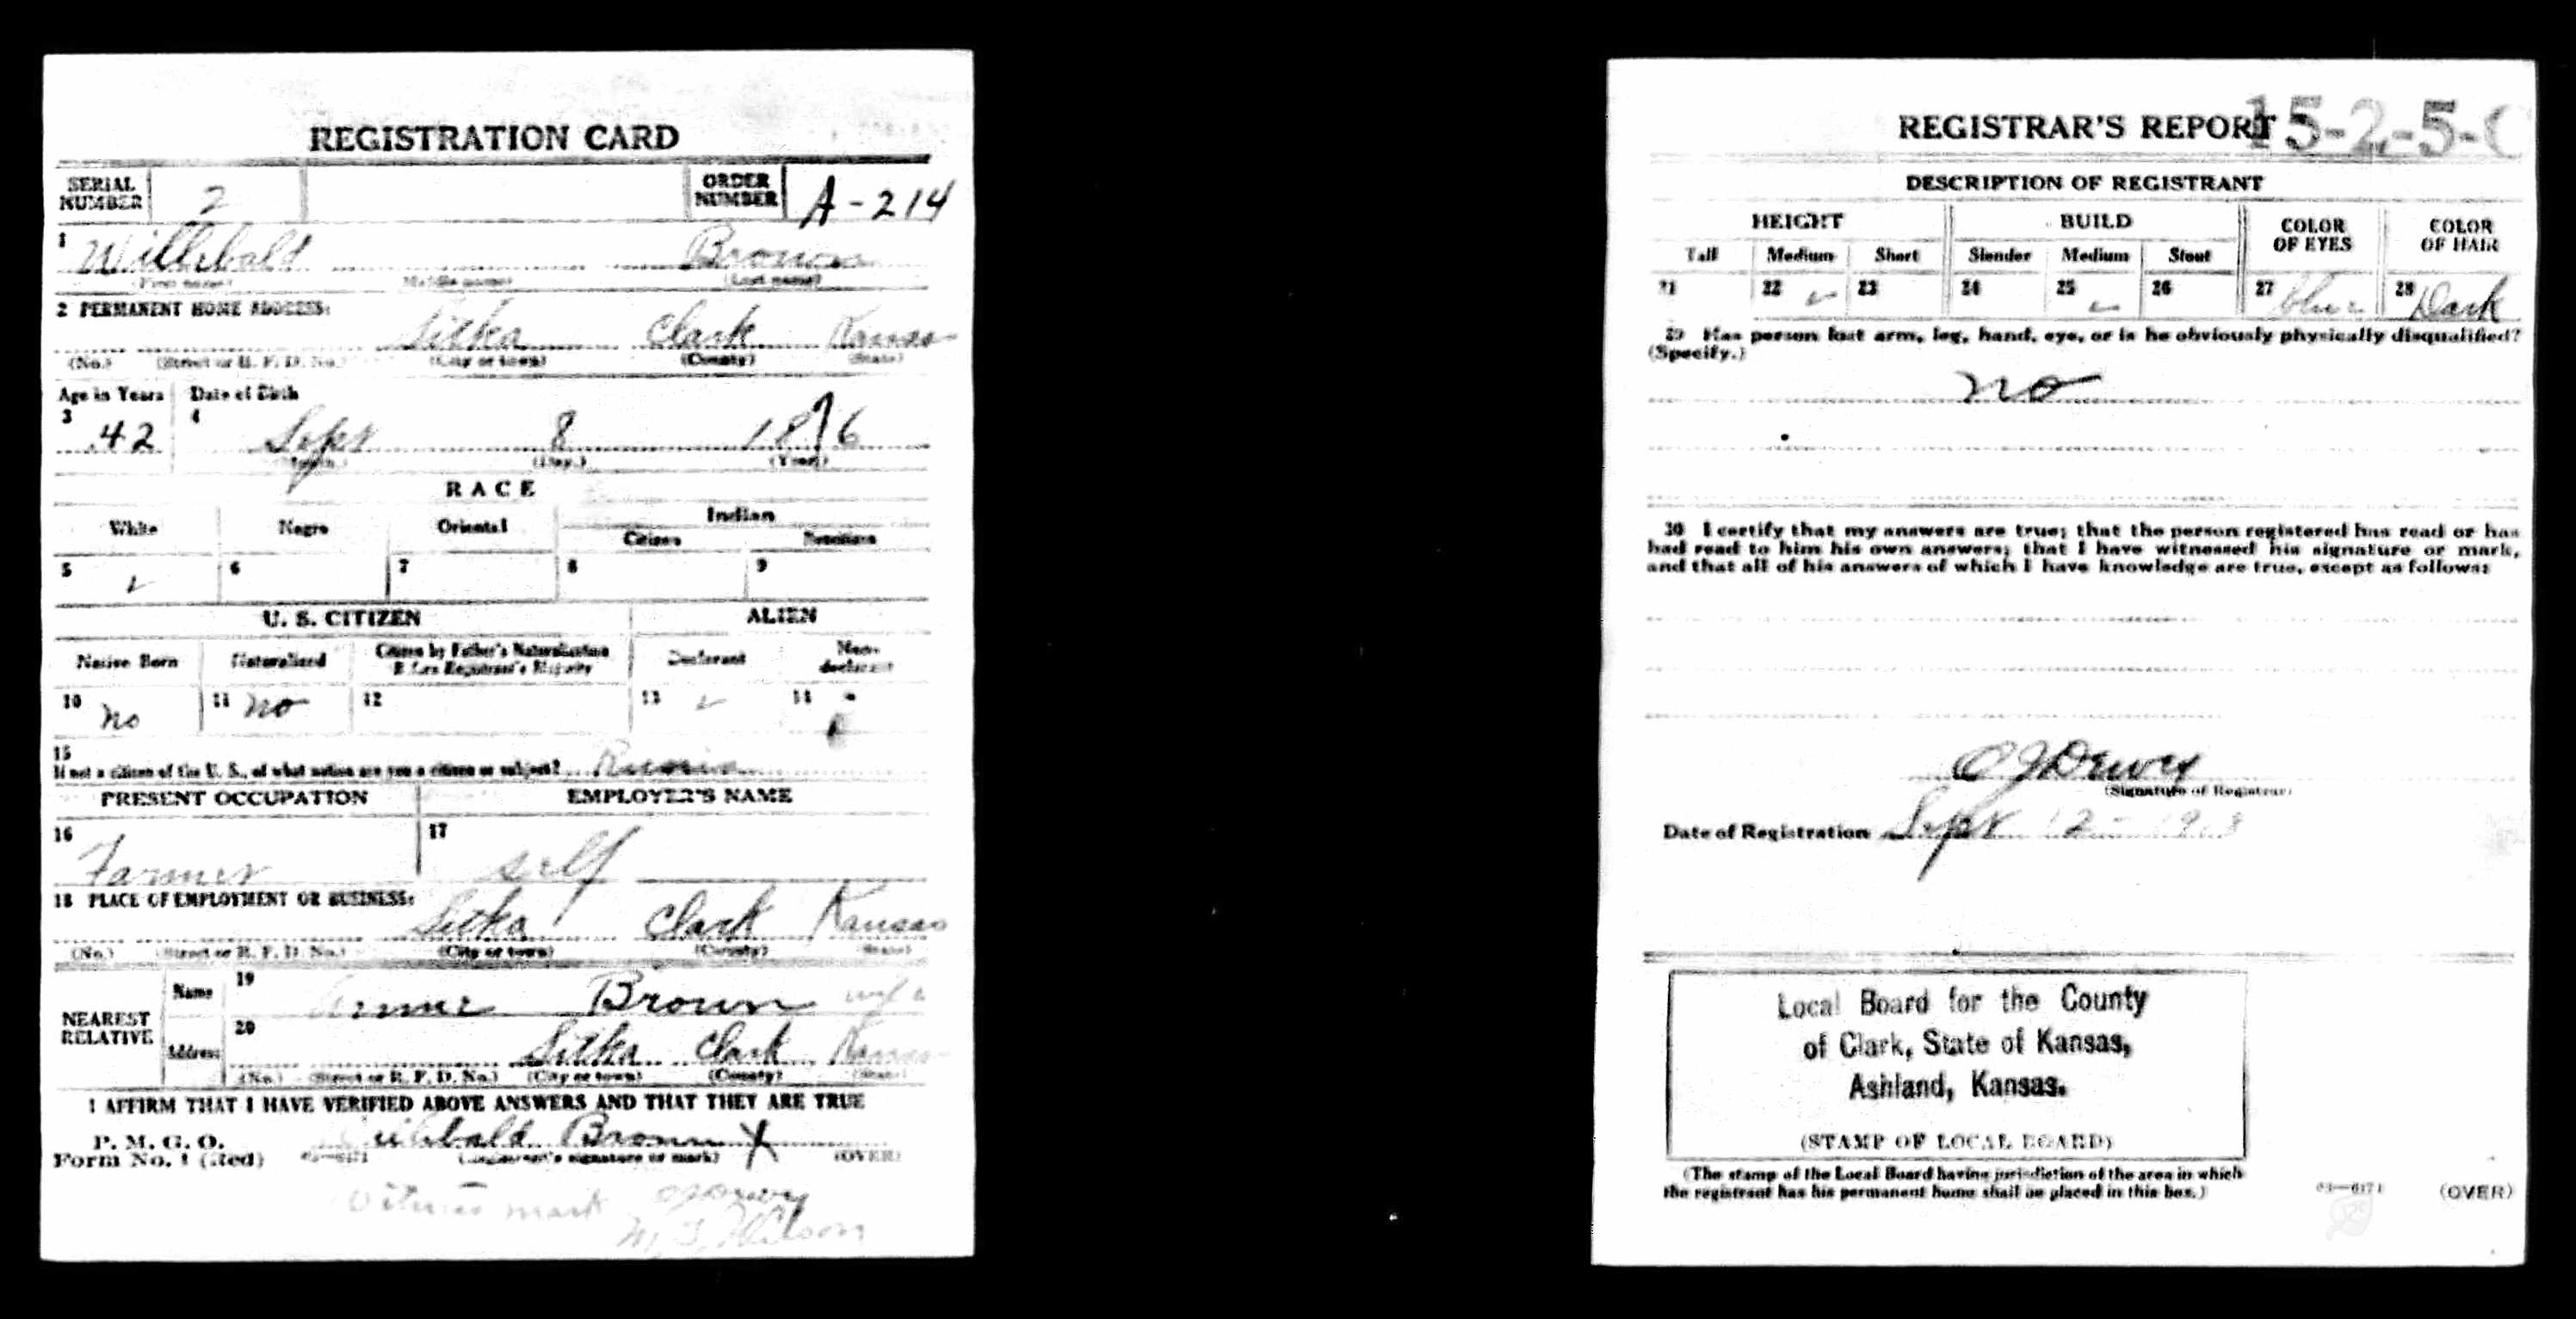 REGISTRATION CARD
SERIAL NUMBER 2 ORDER NUMBER A-214
1 Willibald Brown
(First name) (Middle name) (Last name)
2 PERMANENT HOME ADDRESS:
Sitka Clark Kansas
(No.) (Street or R. F. D. No.) (City or town) (County) (State)
Age in Years Date of Birth
3 42 4 Sept 8 1876
(Month.) (Day.) (Year.)
RACE
White Negro Oriental Indian
Citizen Noncitizen
5 ✓ 6 7 8 9
U. S. CITIZEN ALIEN
Native Born Naturalized Citizen by Father's Naturalization Before Registrant's Majority Declarant Non-declarant
10 no 11 no 12 13 ✓ 14
15
If not a citizen of the U. S., of what nation are you a citizen or subject? Russia
PRESENT OCCUPATION EMPLOYER'S NAME
16 Farmer 17 self
18 PLACE OF EMPLOYMENT OR BUSINESS:
Sitka Clark Kansas
(No.) (Street or R. F. D. No.) (City or town) (County) (State)
NEAREST RELATIVE Name 19 Brown wife
Address 20 Sitka Clark Kansas
(No.) (Street or R. F. D. No.) (City or town) (County) (State)
I AFFIRM THAT I HAVE VERIFIED ABOVE ANSWERS AND THAT THEY ARE TRUE
P. M. G. O.
Form No. 1 (Red) 03—6171 Willibald Brown X
(Registrant's signature or mark) (OVER)
Witness mark O J Dewey
Wilson
REGISTRAR'S REPORT 15-2-5-C
DESCRIPTION OF REGISTRANT
HEIGHT BUILD COLOR OF EYES COLOR OF HAIR
Tall Medium Short Slender Medium Stout
21 22 ✓ 23 24 25 ✓ 26 27 blue 28 Dark
29 Has person lost arm, leg, hand, eye, or is he obviously physically disqualified?
(Specify.)
no
30 I certify that my answers are true; that the person registered has read or has
had read to him his own answers; that I have witnessed his signature or mark,
and that all of his answers of which I have knowledge are true, except as follows:
O J Dewey
(Signature of Registrar)
Date of Registration Sept 12 - 1918
Local Board for the County
of Clark, State of Kansas,
Ashland, Kansas.
(STAMP OF LOCAL BOARD)
(The stamp of the Local Board having jurisdiction of the area in which
the registrant has his permanent home shall be placed in this box.)
03—6171 (OVER)